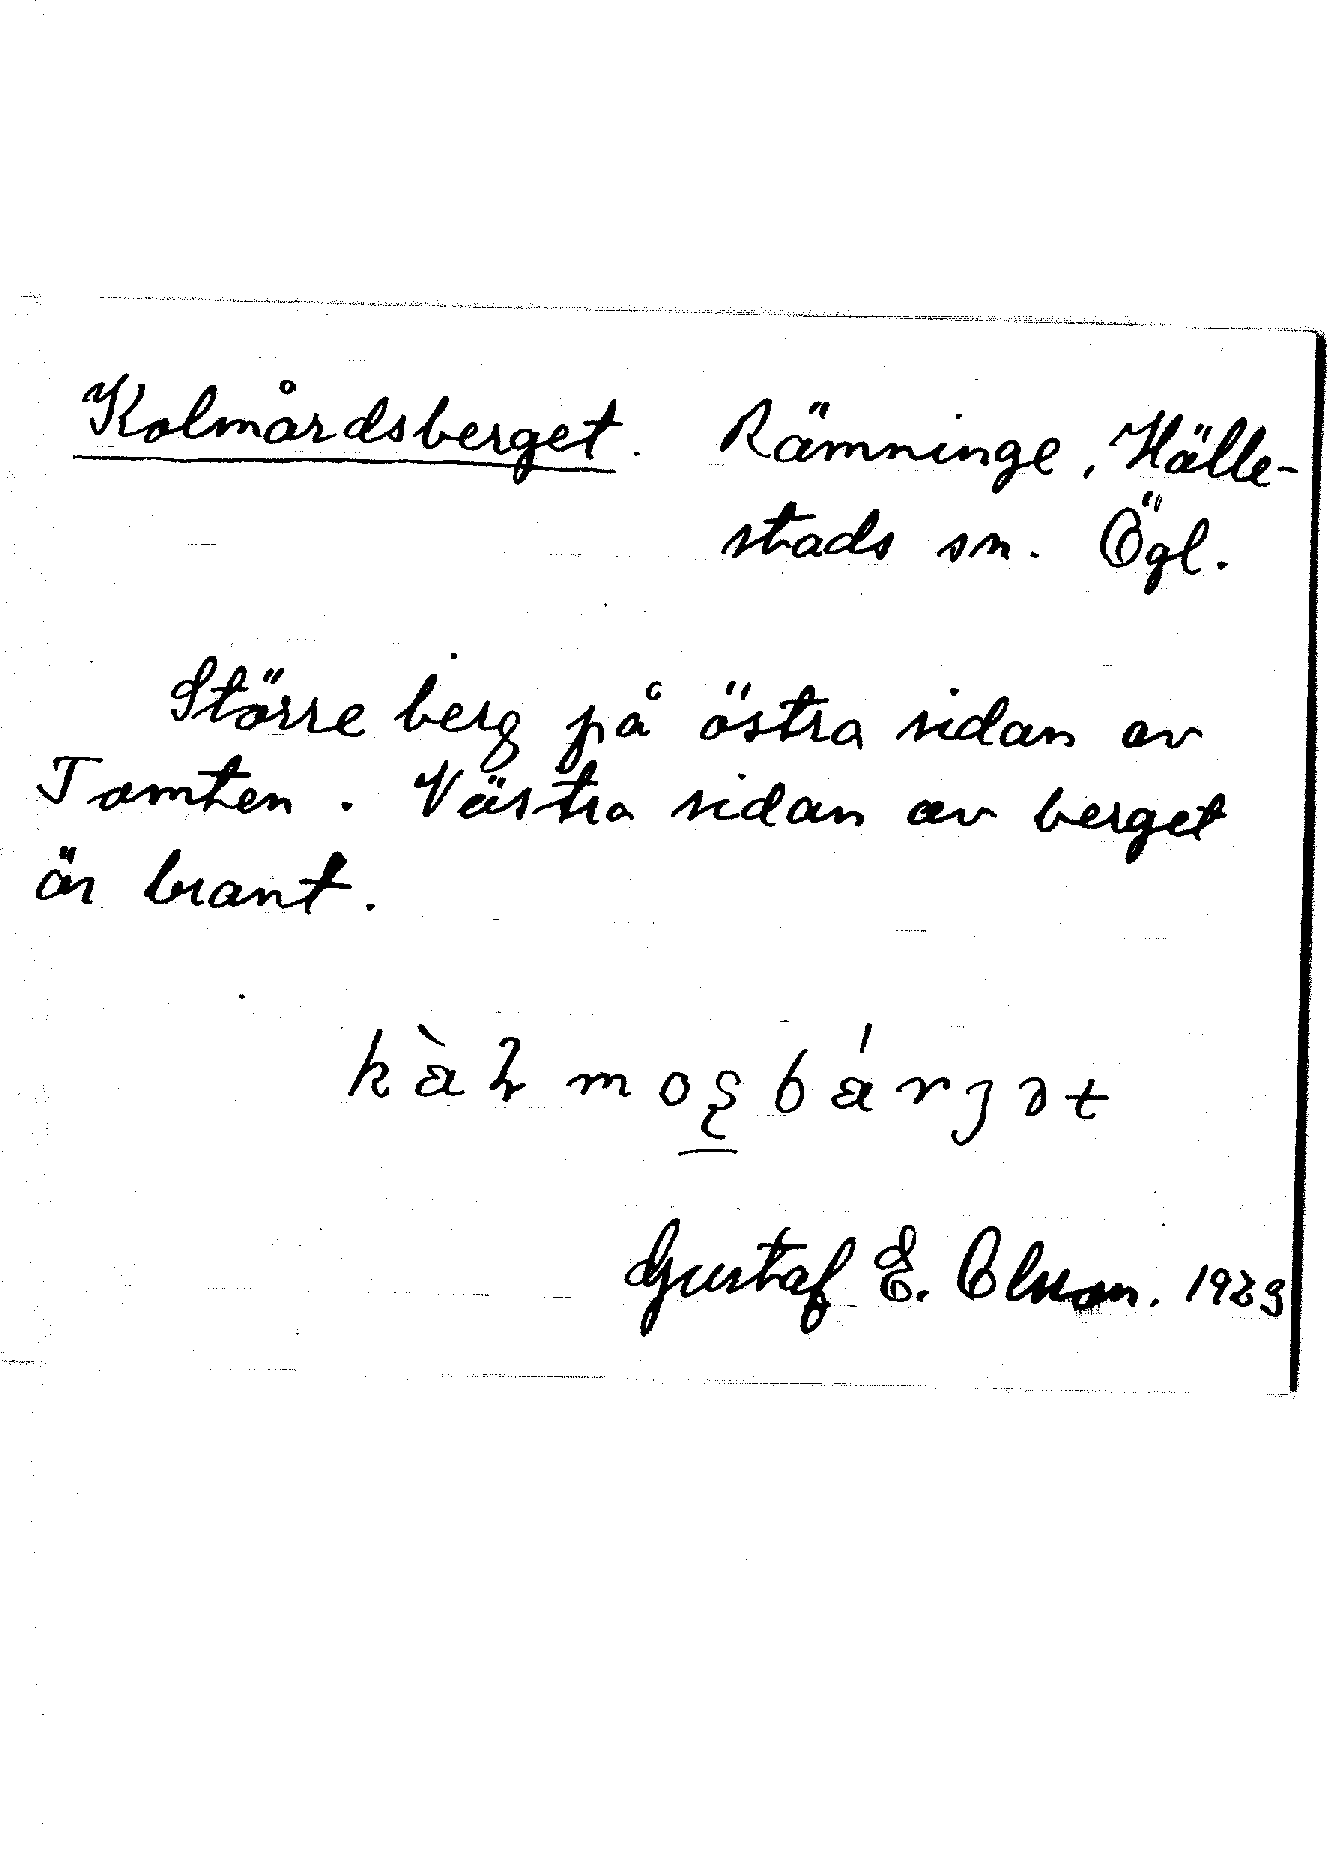 Kolmårdsberget. Rämninge, Hälle-
stads sn. Ögl.
Större berg på östra sidan av
Tomten. Västra sidan av berget
är brant.
Gustaf E. Olson. 1929